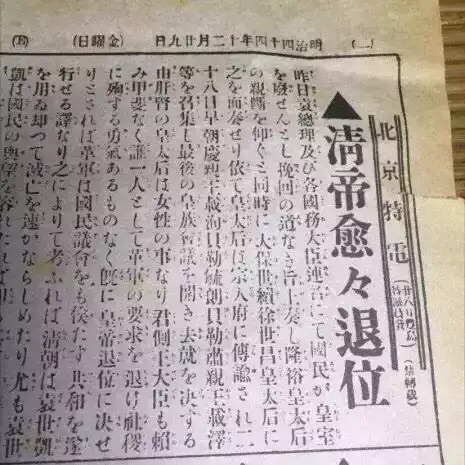 (二)
明治四十四年十二月廿九日
(金曜日)
北京特電
(廿八日特派員發)
▲清帝愈々退位
昨日袁總理及び各國務大臣連名にて國民が皇室
を廢せんとし挽回の道なき旨上奏し隆裕皇太后
の親斷を仰ぐと同時に太保世續徐世昌皇太后に
之を面奏せり依て皇太后は宗人府に傳諭され二
十八日早朝慶親王載洵貝勒毓朗貝勒肅親王載澤
等を召集し最後の皇族會議を開き去就を決する
由肝腎の皇太后は女性の事なり君側王大臣も賴
み甲斐なく誰一人として革軍の要求を退け社稷
に殉する勇氣あるものなく既に皇帝退位に決せ
りとされば革軍は國民議會をも俟たす共和を遂
行せる譯なり之によりて考ふれば清朝は袁世凱
を用ゐ却つて滅亡を速かならしめたり尤も袁世
凱は國民の輿望を容れたれば